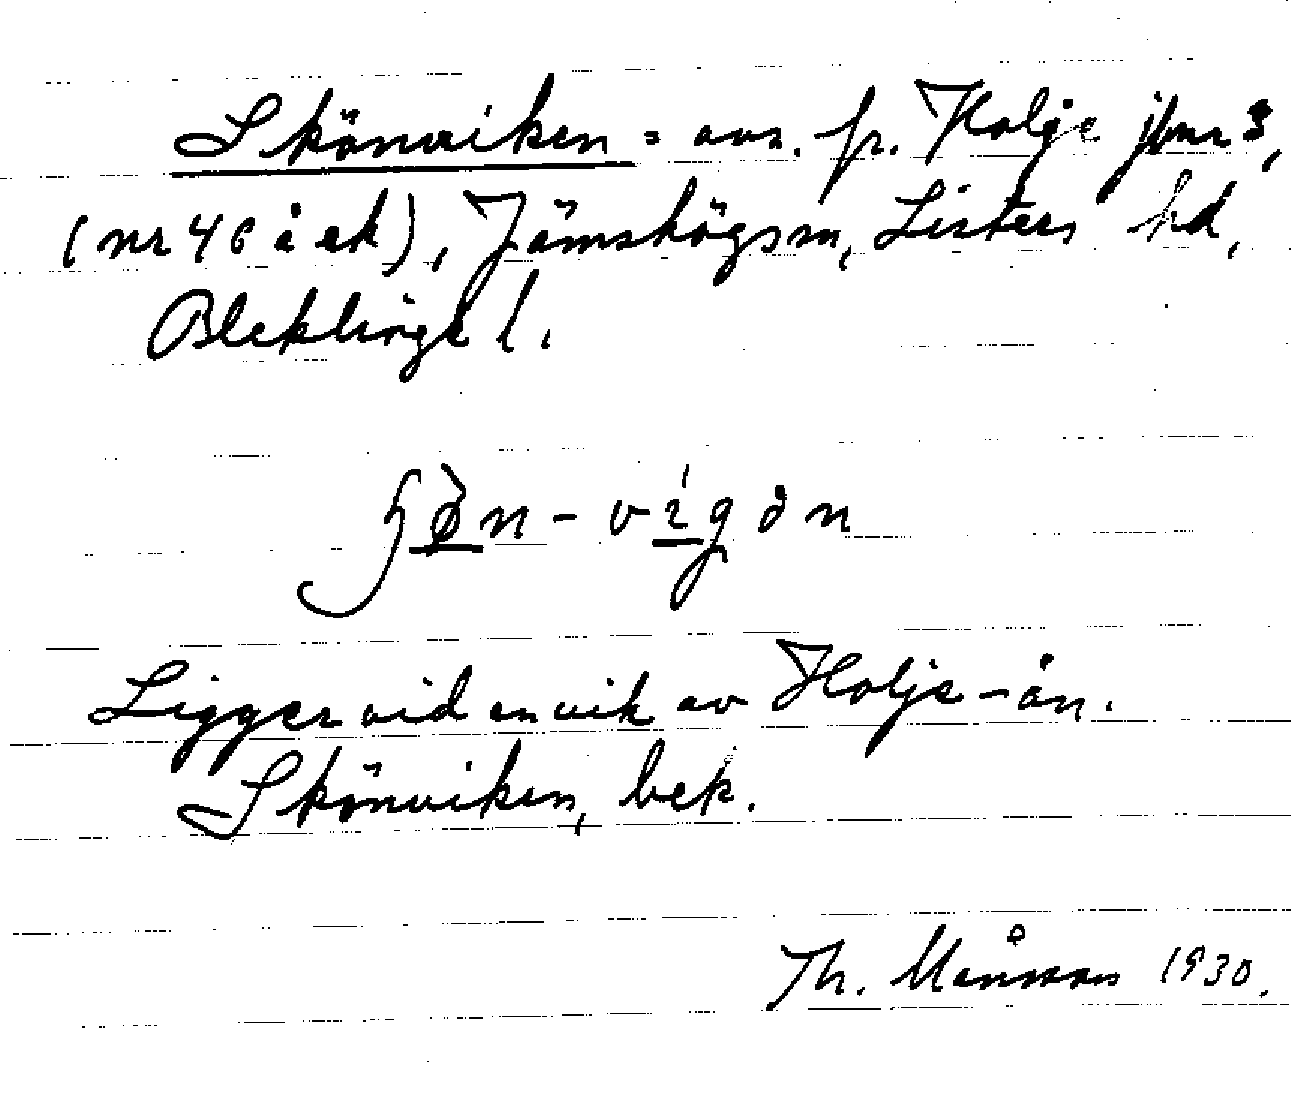 Skönviken = avs. fr. Holje jbnr 3,
(nr 46 å ek), Jämshögs sn, Listers hd,
Blekinge l.
ʃø̀n-vígən
Ligger vid en vik av Holje-ån.
Skönviken, bek.
Th. Månsson 1930.